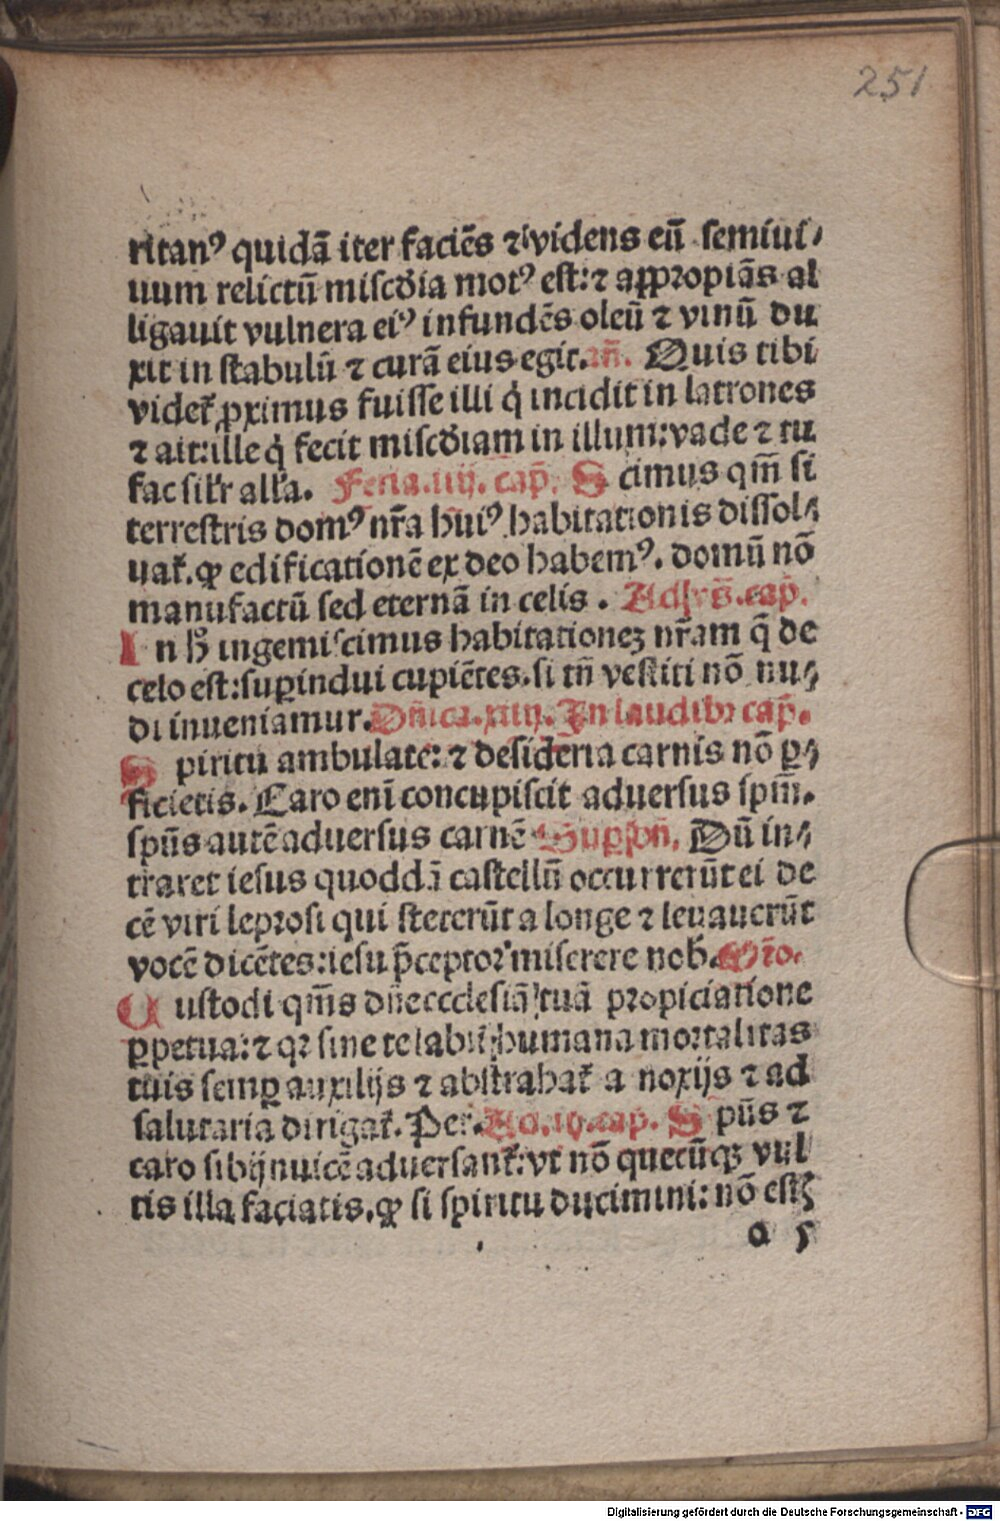 251
ritanꝰ quidā iter faciēs ⁊ videns eū semiui⸗
uum relictū misc̄dia motꝰ est: ⁊ appropiās al
ligauit vulnera eiꝰ infundēs oleū ⁊ vinū du
xit in stabulū ⁊ curā eius egit. an̄. Quis tibi
videt̄ ꝓximus fuisse illi q̇ incidit in latrones
⁊ ait: ille q̇ fecit misc̄diam in illum: vade ⁊ tu
fac sil̄r all̄a. Feria.iiij. cap̄. Scimus qm̄ si
terrestris domꝰ nr̄a huiꝰ habitationis dissol⸗
uat̄. ꝙ edificationē ex deo habemꝰ. domū nō
manufactū sed eternā in celis. Ad vs̄. cap̄.
In h̄ ingemiscimus habitationeꝫ nr̄am q̄ de
celo est: suꝑindui cupiētes. si tn̄ vestiti nō nu⸗
di inueniamur. Dn̄ica. xiiij. In laudibꝫ cap̄.
Spiritu ambulate: ⁊ desideria carnis nō ꝑ⸗
ficietis. Caro eni concupiscit aduersus spm̄.
spūs autē aduersus carnē Suꝑ bn̄. Dū in⸗
traret iesus quoddā castellū occurrerūt ei de
cē viri leprosi qui steterūt a longe ⁊ leuauerūt
vocē dicētes: iesu p̄ceptor miserere nob. Or̄o.
Custodi qm̄s dn̄e eccclesiā tuā propiciatione
ꝑpetua: ⁊ qꝛ sine te labit̄ humana mortalitas
tuis semꝑ auxilijs ⁊ abstrahat̄ a noxijs ⁊ ad
salutaria dirigat̄. Per. Ad. iij. cap̄. Spūs ⁊
caro sibijnuicē aduersant̄: vt nō quecūqꝫ vul
tis illa faciatis. ꝙ si spiritu ducimini: nō estꝭ
a 5
Digitalisierung gefördert durch die Deutsche Forschungsgemeinschaft - DFG